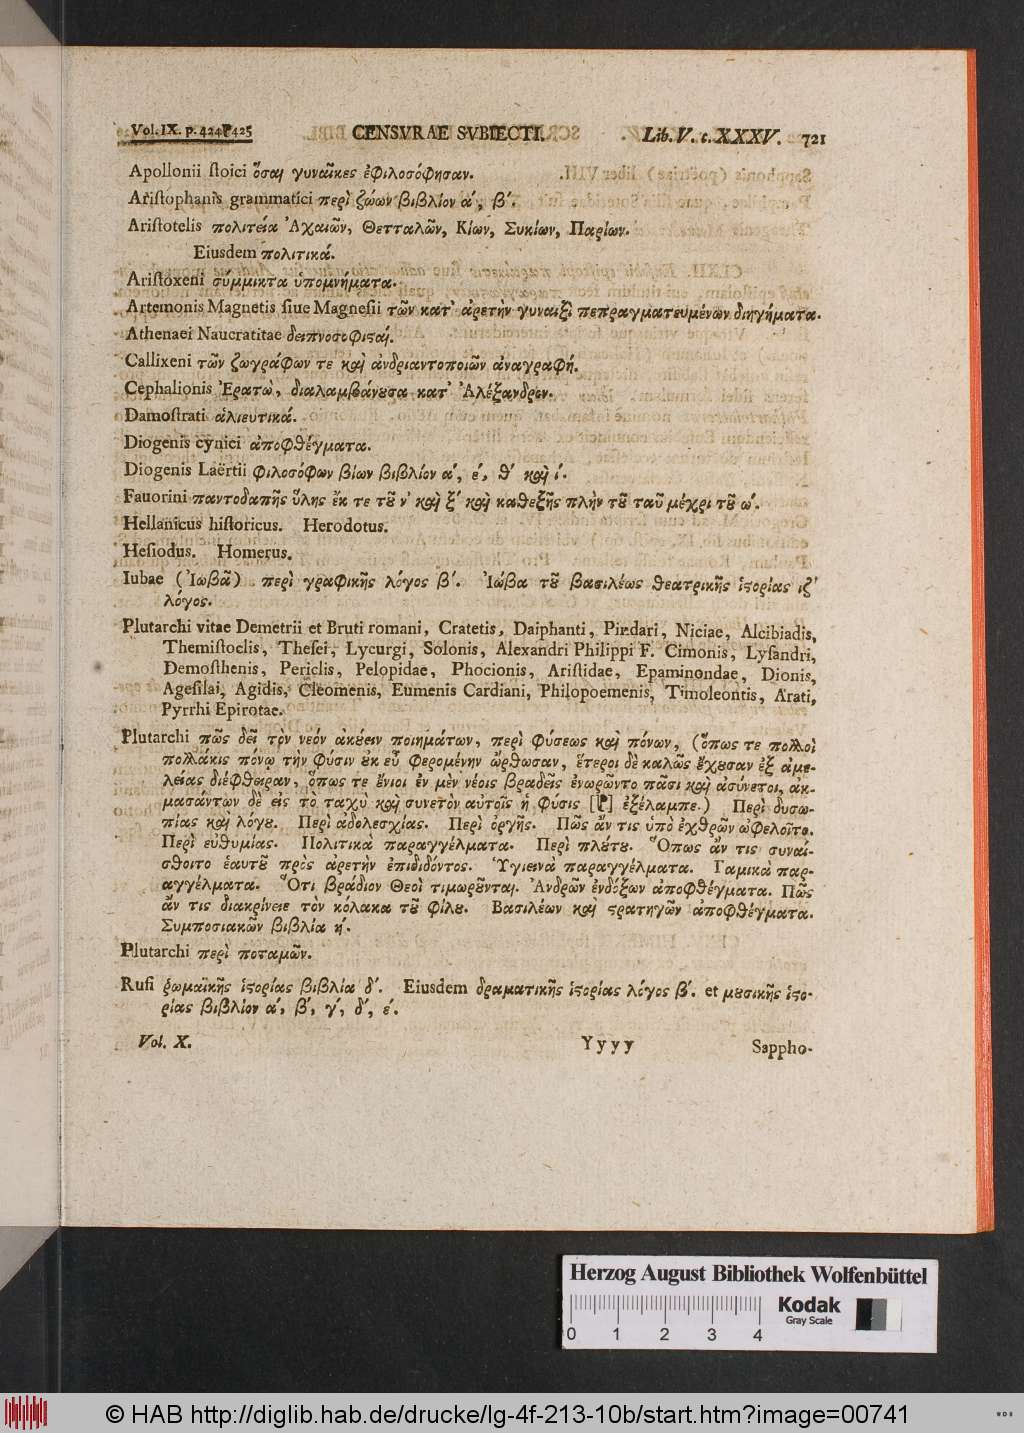 Vol. IX. p. 424 425 CENSVRAE SVBIECTI. Lib. V. c. XXXV. 721
Apollonii ſtoici ὅσαι γυναῖκες ἐφιλοσόφησαν.
Ariſtophanis grammatici περὶ ζώων βιβλίον ά, β΄.
Ariſtotelis πολιτεία Ἀχαιῶν, Θετταλῶν, Κίων, Συκίων, Παρίων.
Eiusdem πολιτικά.
Ariſtoxeni σύμμικτα ὑπομνήματα.
Artemonis Magnetis ſiue Magneſii τῶν κατ' ἀρετὴν γυναιξὶ πεπραγματευμένων διηγήματα.
Athenaei Naucratitae δειπνοσοφισταί.
Callixeni τῶν ζωγράφων τε καὶ ἀνδριαντοποιῶν ἀναγραφή.
Cephalionis Ἐρατὼ, διαλαμβάνουσα κατ' Ἀλέξανδρον.
Damoſtrati ἁλιευτικά.
Diogenis cynici ἀποφθέγματα.
Diogenis Laërtii φιλοσόφων βίων βιβλίον ά, έ, θ΄ καὶ ί.
Fauorini παντοδαπῆς ὕλης ἔκ τε τοῦ ν' καὶ ξ΄ καὶ καθεξῆς πλὴν τοῦ ταῦ μέχρι τοῦ ώ.
Hellanicus hiſtoricus. Herodotus.
Heſiodus. Homerus.
Iubae (Ἰωβᾶ) περὶ γραφικῆς λόγος β΄. Ἰώβα τοῦ βασιλέως θεατρικῆς ἱστορίας ιζ'
λόγος.
Plutarchi vitae Demetrii et Bruti romani, Cratetis, Daiphanti, Pindari, Niciae, Alcibiadis,
Themiſtoclis, Theſei, Lycurgi, Solonis, Alexandri Philippi F. Cimonis, Lyſandri,
Demoſthenis, Periclis, Pelopidae, Phocionis, Ariſtidae, Epaminondae, Dionis,
Ageſilai, Agidis, Cleomenis, Eumenis Cardiani, Philopoemenis, Timoleontis, Arati,
Pyrrhi Epirotae.
Plutarchi πῶς δεῖ τὸν νεόν ἀκούειν ποιημάτων, περὶ φύσεως καὶ πόνων, (ὅπως τε πολλοὶ
πολλάκις πόνῳ τὴν φύσιν οὐκ εὖ φερομένην ὤρθωσαν, ἕτεροι δὲ καλῶς ἔχουσαν ἐξ ἀμε-
λείας διέφθειραν, ὅπως τε ἔνιοι ἐν μὲν νέοις βραδεῖς ἐνωρῶντο πᾶσι καὶ ἀσύνετοι, ἀκ-
μασάντων δὲ εἰς τὸ ταχὺ καὶ συνετὸν αὐτοῖς ἡ φύσις [] ἐξέλαμπε.) Περὶ δυσω-
πίας καὶ λόγου. Περὶ ἀδολεσχίας. Περὶ ὀργῆς. Πῶς ἄν τις ὑπὸ ἐχθρῶν ὠφελοῖτο.
Περὶ εὐθυμίας. Πολιτικὰ παραγγέλματα. Περὶ πλούτου. Ὅπως ἄν τις συναί-
σθοιτο ἑαυτοῦ πρὸς ἀρετὴν ἐπιδιδόντος. Ὑγιεινὰ παραγγέλματα. Γαμικὰ παρ-
αγγέλματα. Ὅτι βράδιον Θεοὶ τιμωροῦνται. Ἀνδρῶν ἐνδόξων ἀποφθέγματα. Πῶς
ἄν τις διακρίνειε τὸν κόλακα τοῦ φίλου. Βασιλέων καὶ στρατηγῶν ἀποφθέγματα.
Συμποσιακῶν βιβλία ή.
Plutarchi περὶ ποταμῶν.
Rufi ῥωμαϊκῆς ἱστορίας βιβλία δ΄. Eiusdem δραματικῆς ἱστορίας λόγος β΄. et μουσικῆς ἱστο-
ρίας βιβλίον ά, β΄, γ΄, δ΄, έ.
Vol. X. Yyyy Sappho-
Herzog August Bibliothek Wolfenbüttel
0 1 2 3 4 Kodak
Gray Scale
© HAB http://diglib.hab.de/drucke/lg-4f-213-10b/start.htm?image=00741